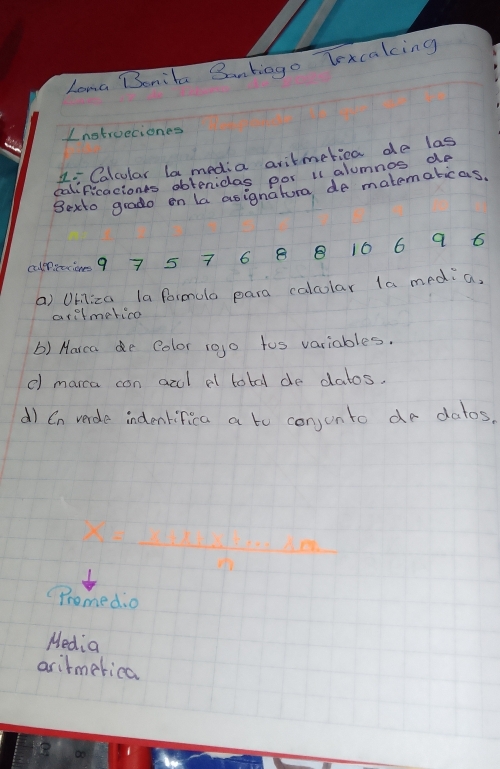 Loma Bonita Santiago Texcalcing
Instrucciones
1.- Calcular la media aritmetica de las
calificaciones obtenidas por 11 alumnos de
Sexto grado en la asignatura de matematicas.
calificaciones 9 7 5 7 6 8 8 10 6 9 6
a) Utiliza la formula para calcular la media,
aritmetica
b) Marca de Color rojo tus variables.
c) marca con azul el total de datos.
d) En verde indentifica a tu conjunto de datos.
X =
n
Promedio
Media
aritmetica